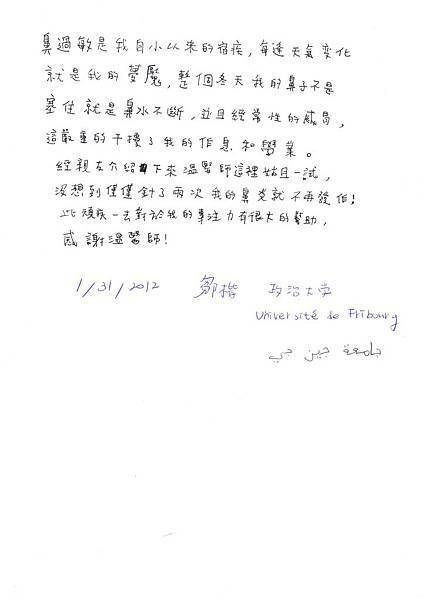 鼻過敏是我自小以來的宿疾，每逢天氣变化
就是我的夢魘，整個冬天我的鼻子不是
塞住就是鼻水不斷，並且經常性的感冒，
這嚴重的干擾了我的作息和學業。
經親友介紹下來溫醫師這裡姑且一試，
沒想到僅僅針了兩次我的鼻炎就不再發作！
此頑疾一去對於我的專注力有很大的幫助，
感謝溫醫師！
1/31/2012 鄒楷 政治大学
Université de Fribourg
جامعة جين جي